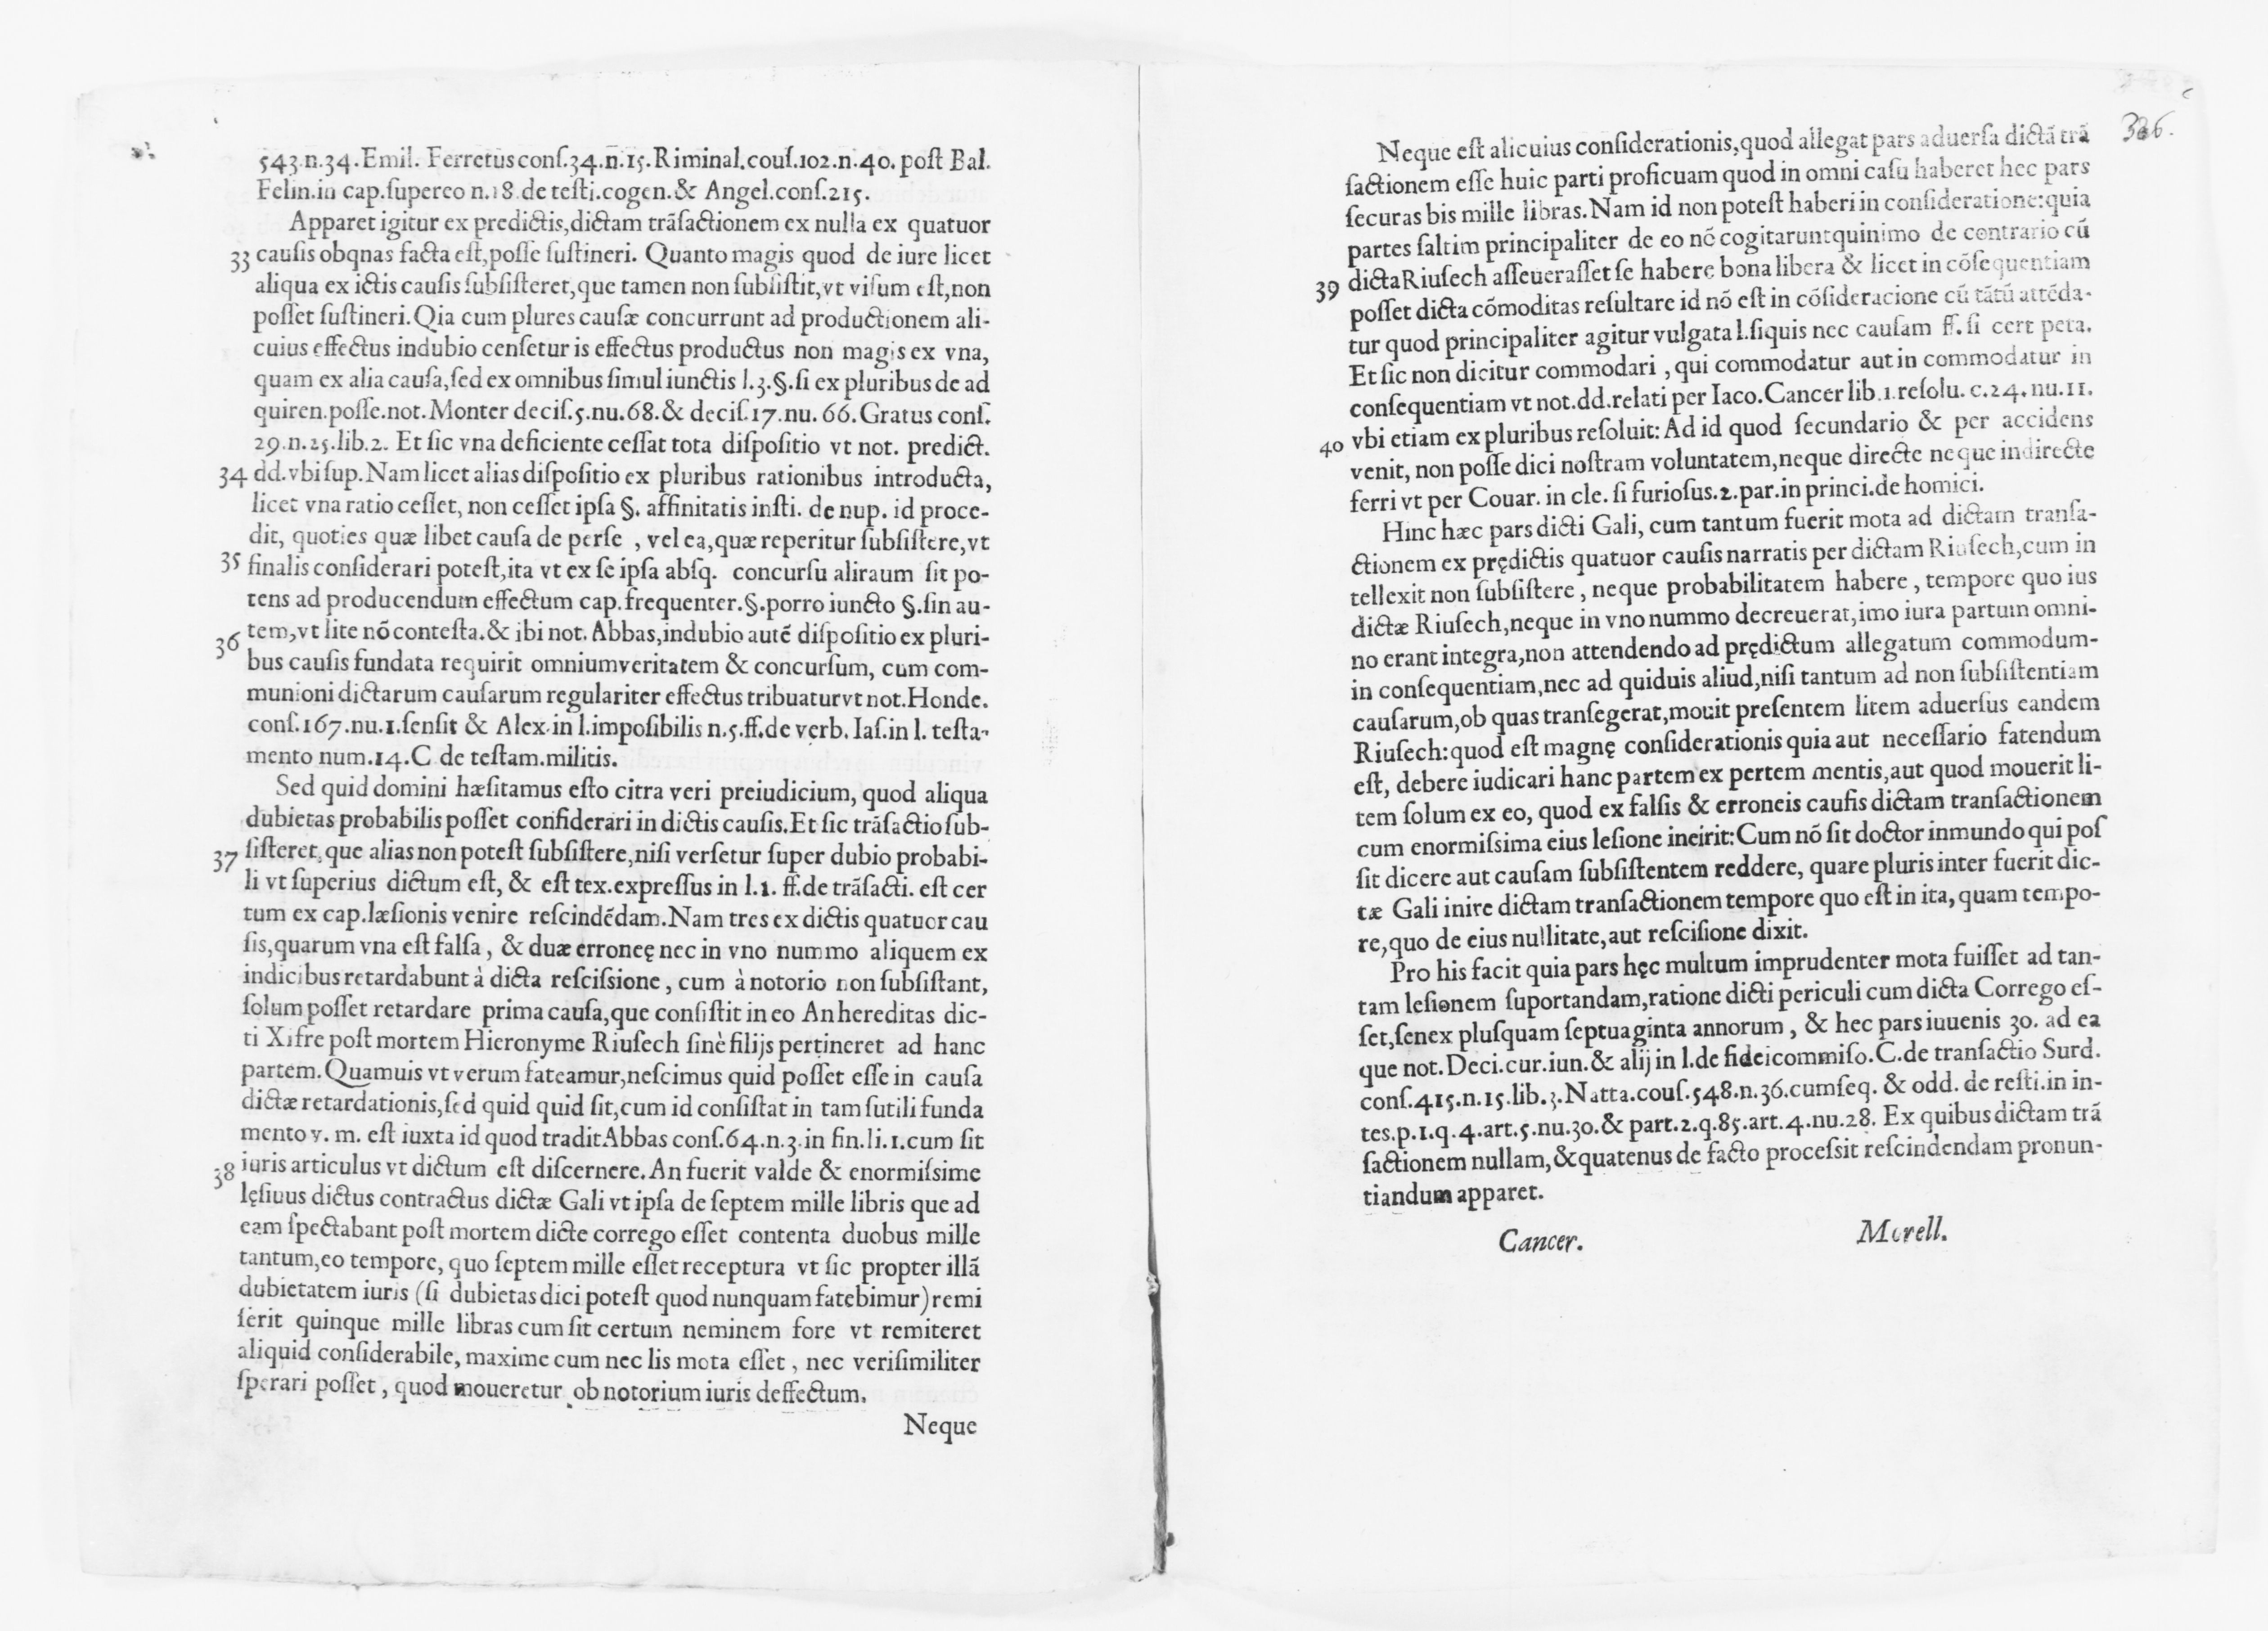 543.n.34.Emil. Ferretus conſ.34.n̄.15.Riminal.couſ.102.n.40. poſt Bal.
Felin.in cap.ſupereo n.18.de teſti.cogen.& Angel.conſ.215.
Apparet igitur ex predictis,dictam trãſactionem ex nulla ex quatuor
33 cauſis obqnas facta eſt,poſſe ſuſtineri. Quanto magis quod de iure licet
aliqua ex ictis cauſis ſubſiſteret,que tamen non ſubſiſtit,vt viſum eſt,non
poſſet ſuſtineri.Qia cum plures cauſæ concurrunt ad productionem ali-
cuius effectus indubio cenſetur is effectus productus non magis ex vna,
quam ex alia cauſa,ſed ex omnibus ſimul iunctis l.3.§.ſi ex pluribus de ad
quiren.poſſe.not.Monter deciſ.5.nu.68.& deciſ.17.nu.66.Gratus conſ.
29.n.25.lib.2. Et ſic vna deficiente ceſſat tota diſpoſitio vt not. predict.
34 dd.vbi ſup.Nam licet alias diſpoſitio ex pluribus rationibus introducta,
licet vna ratio ceſſet, non ceſſet ipſa §. affinitatis inſti. de nup. id proce-
dit, quoties quæ libet cauſa de perſe , vel ea,quæ reperitur ſubſiſtere,vt
35 finalis conſiderari poteſt,ita vt ex ſe ipſa abſq. concurſu aliraum ſit po-
tens ad producendum effectum cap.frequenter.§.porro iuncto §.ſin au-
36 tem,vt lite nõ conteſta.& ibi not. Abbas,indubio autẽ diſpoſitio ex pluri-
bus cauſis fundata requirit omniumveritatem & concurſum, cum com-
munioni dictarum cauſarum regulariter effectus tribuaturvt not.Honde.
conſ.167.nu.1.ſenſit & Alex.in l.impoſibilis n.5.ff.de verb. Iaſ.in l. teſta-
mento num.14.C de teſtam.militis.
Sed quid domini hæſitamus eſto citra veri preiudicium, quod aliqua
dubietas probabilis poſſet conſiderari in dictis cauſis.Et ſic trãſactio ſub-
37 ſiſteret,que alias non poteſt ſubſiſtere,niſi verſetur ſuper dubio probabi-
li vt ſuperius dictum eſt, & eſt tex.expreſſus in l.1. ff.de trãſacti. eſt cer
tum ex cap.læſionis venire reſcindẽdam.Nam tres ex dictis quatuor cau
ſis,quarum vna eſt falſa, & duæ erroneę nec in vno nummo aliquem ex
indicibus retardabunt à dicta reſciſsione, cum à notorio non ſubſiſtant,
ſolum poſſet retardare prima cauſa,que conſiſtit in eo An hereditas dic-
ti Xifre poſt mortem Hieronyme Riuſech ſinè filijs pertineret ad hanc
partem.Quamuis vt verum fateamur,neſcimus quid poſſet eſſe in cauſa
dictæ retardationis,ſed quid quid ſit,cum id conſiſtat in tam ſutili funda
mento v. m. eſt iuxta id quod tradit Abbas conſ.64.n.3.in fin.li.1.cum ſit
38 iuris articulus vt dictum eſt diſcernere.An fuerit valde & enormiſsime
lęſiuus dictus contractus dictæ Gali vt ipſa de ſeptem mille libris que ad
eam ſpectabant poſt mortem dicte corrego eſſet contenta duobus mille
tantum,eo tempore, quo ſeptem mille eſſet receptura vt ſic propter illã
dubietatem iuris (ſi dubietas dici poteſt quod nunquam fatebimur) remi
ſerit quinque mille libras cum ſit certum neminem fore vt remiteret
aliquid conſiderabile, maxime cum nec lis mota eſſet , nec veriſimiliter
ſperari poſſet , quod moueretur ob notorium iuris deffectum.
Neque
336.
Neque eſt alicuius conſiderationis,quod allegat pars aduerſa dictã trã
ſactionem eſſe huic parti proficuam quod in omni caſu haberet hec pars
ſecuras bis mille libras.Nam id non poteſt haberi in conſideratione:quia
partes ſaltim principaliter de eo nõ cogitaruntquinimo de contrario cũ
39 dicta Riuſech aſſeueraſſet ſe habere bona libera & licet in cõſequentiam
poſſet dicta cõmoditas reſultare id nõ eſt in cõſideracione cũ tãtũ attẽda-
tur quod principaliter agitur vulgata l.ſiquis nec cauſam ff. ſi cert peta.
Et ſic non dicitur commodari , qui commodatur aut in commodatur in
conſequentiam vt not.dd.relati per Iaco.Cancer lib.1.reſolu. c.24.nu.11.
40 vbi etiam ex pluribus reſoluit: Ad id quod ſecundario & per accidens
venit, non poſſe dici noſtram voluntatem,neque directe neque indirecte
ferri vt per Couar. in cle. ſi furioſus.2.par.in princi.de homici.
Hinc hæc pars dicti Gali, cum tantum fuerit mota ad dictam tranſa-
ctionem ex prędictis quatuor cauſis narratis per dictam Riuſech,cum in
tellexit non ſubſiſtere , neque probabilitatem habere , tempore quo ius
dictæ Riuſech,neque in vno nummo decreuerat,imo iura partum omni-
no erant integra,non attendendo ad prędictum allegatum commodum-
in conſequentiam,nec ad quiduis aliud,niſi tantum ad non ſubſiſtentiam
cauſarum,ob quas tranſegerat,mouit preſentem litem aduerſus eandem
Riuſech:quod eſt magnę conſiderationis quia aut neceſſario fatendum
eſt, debere iudicari hanc partem ex pertem mentis,aut quod mouerit li-
tem ſolum ex eo, quod ex falſis & erroneis cauſis dictam tranſactionem
cum enormiſsima eius leſione incirit:Cum nõ ſit doctor inmundo qui poſ
ſit dicere aut cauſam ſubſiſtentem reddere, quare pluris inter fuerit dic-
tæ Gali inire dictam tranſactionem tempore quo eſt in ita, quam tempo-
re,quo de eius nullitate,aut reſciſione dixit.
Pro his facit quia pars hęc multum imprudenter mota fuiſſet ad tan-
tam leſionem ſuportandam,ratione dicti periculi cum dicta Corrego eſ-
ſet,ſenex pluſquam ſeptuaginta annorum , & hec pars iuuenis 30. ad ea
que not.Deci.cur.iun.& alij in l.de fideicommiſo.C.de tranſactio Surd.
conſ.415.n.15.lib.3.Natta.couſ.548.n.36.cumſeq. & odd. de reſti.in in-
tes.p.1.q.4.art.5.nu.30.& part.2.q.85.art.4.nu.28. Ex quibus dictam trã
ſactionem nullam,&quatenus de facto proceſsit reſcindendam pronun-
tiandum apparet.
Cancer. Morell.